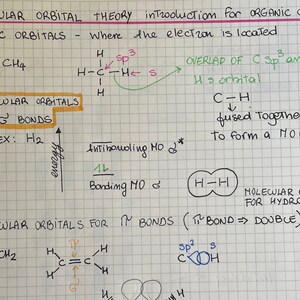 CULAR ORBITAL THEORY introduction for ORGANIC C
C ORBITALS - where the electron is located
CH4
H
sp3
H - C - H ← s
H
OVERLAD OF C sp3 an
H s orbital
C - H
fused together
to form a MO
CULAR ORBITALS
σ BONDS
EX: H2
Antibonding MO σ*
1L
Bonding MO σ
H - H
MOLECULAR
FOR HYDRO
CULAR ORBITALS FOR π BONDS (π BOND => DOUBLE
CH2
H H
C = C
H H
π
σ
sp2 s
C H